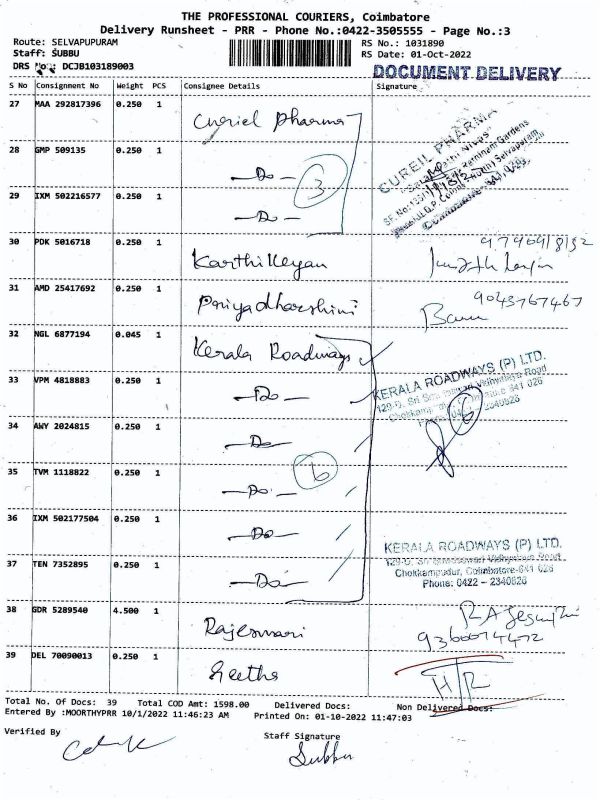 THE PROFESSIONAL COURIERS, Coimbatore
Delivery Runsheet - PRR - Phone No.:0422-3505555 - Page No.:3
Route: SELVAPUPURAM
RS No.: 1031890
Staff: SUBBU
RS Date: 01-Oct-2022
DRS No.: DCJB103189003
DOCUMENT DELIVERY
S No Consignment No Weight PCS Consignee Details Signature
27 MAA 292817396 0.250 1 Cureil Pharma
28 GMP 509135 0.250 1 - Do -
29 IXM 502216577 0.250 1 - Do -
3
CUREIL PHARMA
30 PDK 5016718 0.250 1 Karthikeyan
31 AMD 25417692 0.250 1 Priyadharshini 9043767467
32 NGL 6877194 0.045 1 Kerala Roadways
33 VPM 4818883 0.250 1 - Do -
KERALA ROADWAYS (P) LTD.
34 AWY 2024815 0.250 1 - Do -
6
35 TVM 1118822 0.250 1 - Do -
6
36 IXM 502177504 0.250 1 - Do -
37 TEN 7352895 0.250 1 - Do -
KERALA ROADWAYS (P) LTD.
Chokkampudur, Coimbatore-641 026
Phone: 0422 - 2340826
38 GDR 5289540 4.500 1 Rajeswari
39 DEL 70090013 0.250 1 Geetha
Total No. Of Docs: 39 Total COD Amt: 1598.00 Delivered Docs: Non Delivered Docs:
Entered By :MOORTHYPRR 10/1/2022 11:46:23 AM Printed On: 01-10-2022 11:47:03
Verified By
Staff Signature
Subbu